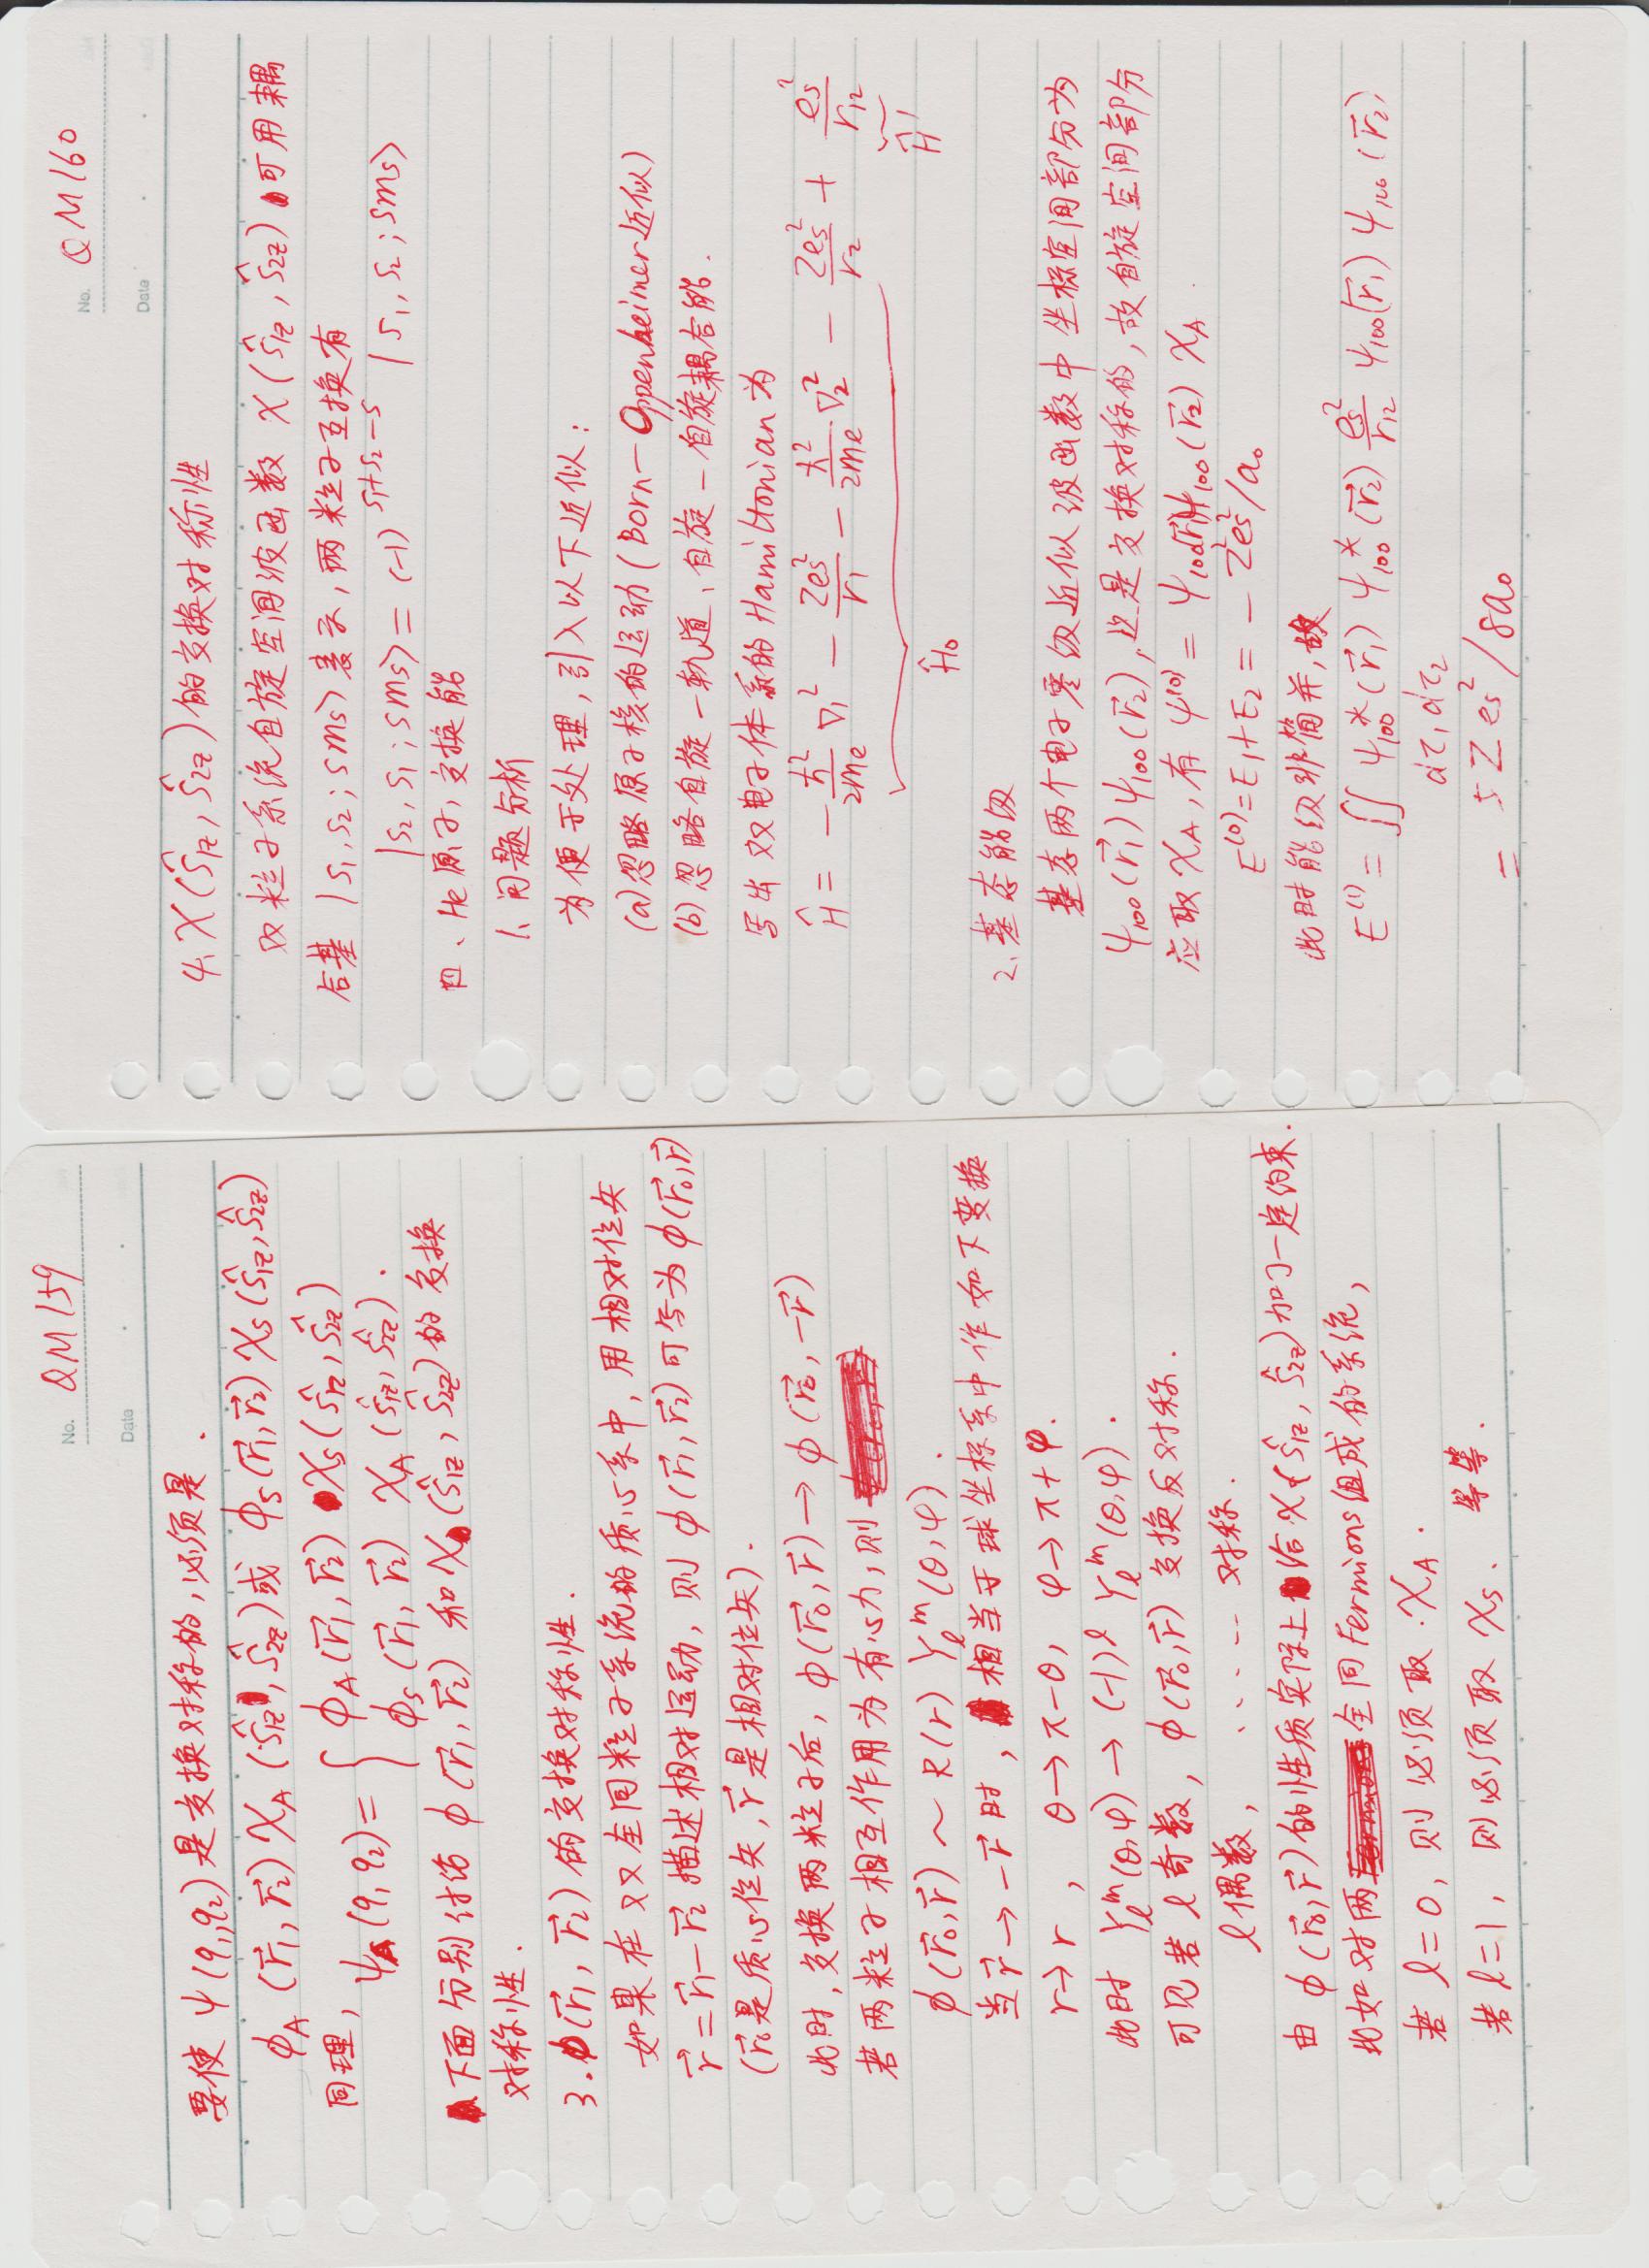 No. QM159
Date
要使 ψ(q₁,q₂) 是交换对称的,必须是.
ϕ_A (r⃗₁, r⃗₂) χ_A (ŝ₁z, ŝ₂z) 或 ϕ_S (r⃗₁, r⃗₂) χ_S (ŝ₁z, ŝ₂z)
同理, ψ_A (q₁ q₂) = { ϕ_A (r⃗₁, r⃗₂) χ_S (ŝ₁z, ŝ₂z)
ϕ_S (r⃗₁, r⃗₂) χ_A (ŝ₁z, ŝ₂z).
下面分别讨论 ϕ (r⃗₁, r⃗₂) 和 χ (ŝ₁z, ŝ₂z) 的交换
对称性.
3. ϕ(r⃗₁, r⃗₂) 的交换对称性.
如果在双全同粒子系统的质心系中, 用相对位矢
r⃗ = r⃗₁ − r⃗₂ 描述相对运动, 则 ϕ(r⃗₁, r⃗₂) 可写为 ϕ(r⃗₀, r⃗)
(r⃗₀是质心位矢, r⃗ 是相对位矢).
此时, 交换两粒子后, ϕ(r⃗₀, r⃗) → ϕ(r⃗₀, −r⃗)
若两粒子相互作用为有心力, 则
ϕ(r⃗₀, r⃗) ~ R(r) Yₗᵐ(θ, φ).
当 r⃗ → −r⃗ 时, 相当于球坐标系中作如下变换
r → r , θ → π−θ, φ → π+φ.
此时 Yₗᵐ(θ,φ) → (−1)ˡ Yₗᵐ(θ,φ).
可见若 l 奇数, ϕ(r⃗₀, r⃗) 交换反对称.
l 偶数, ...... 对称.
由 ϕ(r⃗₀, r⃗) 的性质实际上给 χ(ŝ₁z, ŝ₂z) 加了一定约束.
比如对两全同Fermions组成的系统,
若 l=0, 则必须取 χ_A.
若 l=1, 则必须取 χ_S. 等等.
No. QM160
Date
4. χ(ŝ₁z, ŝ₂z) 的交换对称性
双粒子系统自旋空间波函数 χ(ŝ₁z, ŝ₂z) 可用耦
合基 |s₁, s₂; s mₛ> 表示, 两粒子互换有
|s₂, s₁; s mₛ> = (−1)^(s₁+s₂−s) |s₁, s₂; s mₛ>
四、He原子, 交换能
1、问题分析
为便于处理, 引入以下近似:
(a) 忽略原子核的运动 (Born−Oppenheimer近似)
(b) 忽略自旋−轨道、自旋−自旋耦合能.
写出双电子体系的Hamiltonian为
Ĥ = −ℏ²/2mₑ ∇₁² − Zeₛ²/r₁ − ℏ²/2mₑ ∇₂² − Zeₛ²/r₂ + eₛ²/r₁₂
Ĥ₀ Ĥ′
2、基态能级
基态两个电子零级近似波函数中坐标空间部分为
ψ₁₀₀(r⃗₁) ψ₁₀₀(r⃗₂), 这是交换对称的, 故自旋空间部分
应取 χ_A, 有 ψ⁽⁰⁾ = ψ₁₀₀(r⃗₁)ψ₁₀₀(r⃗₂) χ_A.
E⁽⁰⁾ = E₁+E₂ = −Z²eₛ²/a₀
此时能级非简并, 故
E⁽¹⁾ = ∬ ψ₁₀₀*(r⃗₁) ψ₁₀₀*(r⃗₂) eₛ²/r₁₂ ψ₁₀₀(r⃗₁) ψ₁₀₀(r⃗₂)
dτ₁dτ₂
= 5Zeₛ²/8a₀